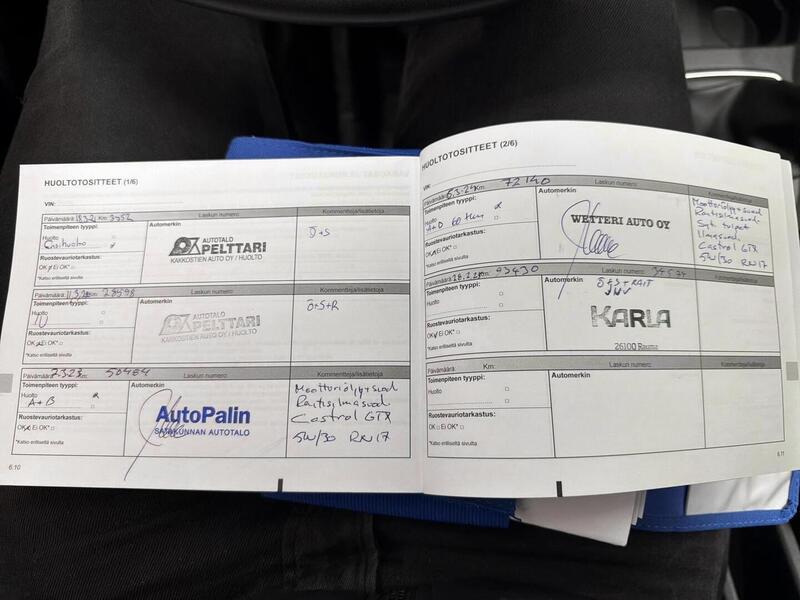 HUOLTOTOSITTEET (1/6)
VIN:
Päivämäärä Km Laskun numero: Kommentteja/lisätietoja
Toimenpiteen tyyppi: Automerkin
Huolto
AUTOTALO
PELTTARI
KAKKOSTIEN AUTO OY / HUOLTO
Ö+S
Ruostevauriotarkastus:
OK Ei OK*
*Katso erilliseltä sivulta
Päivämäärä Km 28598 Laskun numero: Kommentteja/lisätietoja
Toimenpiteen tyyppi: Automerkin
Huolto
AUTOTALO
PELTTARI
KAKKOSTIEN AUTO OY / HUOLTO
Ö+S+R
Ruostevauriotarkastus:
OK Ei OK*
*Katso erilliseltä sivulta
Päivämäärä 7.3.23 50464 Laskun numero: Kommentteja/lisätietoja
Toimenpiteen tyyppi: Automerkin
Huolto
A+B
AutoPalin
SATAKUNNAN AUTOTALO
Moottoriöljy+suod
Raitisilmasuod
Castrol GTX
5W/30 RN17
Ruostevauriotarkastus:
OK Ei OK*
*Katso erilliseltä sivulta
6.10
HUOLTOTOSITTEET (2/6)
VIN:
Päivämäärä 6.3.24 Km 72140 Laskun numero: Kommentteja/lisätietoja
Toimenpiteen tyyppi: Automerkin
Huolto
A+D 60 tkm
WETTERI AUTO OY
Moottoriöljy+suod
Raitisilmasuod
Syt. tulpat
Ilmasuod
Castrol GTX
5W/30 RN17
Ruostevauriotarkastus:
OK Ei OK*
*Katso erilliseltä sivulta
Päivämäärä Km 93430 Laskun numero: Kommentteja/lisätietoja
Toimenpiteen tyyppi: Automerkin
Huolto
Ö+S+RAIT
KARLA
26100 Rauma
Ruostevauriotarkastus:
OK Ei OK*
*Katso erilliseltä sivulta
Päivämäärä Km: Laskun numero: Kommentteja/lisätietoja
Toimenpiteen tyyppi: Automerkin
Huolto
Ruostevauriotarkastus:
OK Ei OK*
*Katso erilliseltä sivulta
6.11